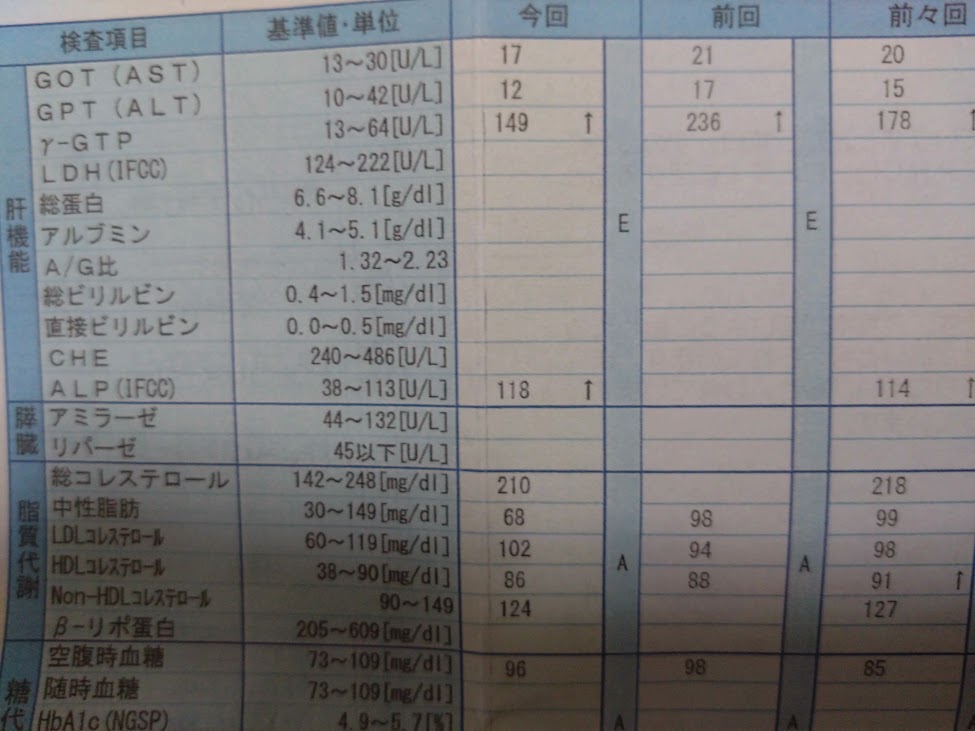 検査項目 基準値・単位 今回 前回 前々回
肝機能
GOT (AST) 13～30[U/L] 17 21 20
GPT (ALT) 10～42[U/L] 12 17 15
γ-GTP 13～64[U/L] 149 ↑ 236 ↑ 178 ↑
LDH(IFCC) 124～222[U/L]
総蛋白 6.6～8.1[g/dl] E E
アルブミン 4.1～5.1[g/dl]
A/G比 1.32～2.23
総ビリルビン 0.4～1.5[mg/dl]
直接ビリルビン 0.0～0.5[mg/dl]
CHE 240～486[U/L]
ALP(IFCC) 38～113[U/L] 118 ↑ 114 ↑
膵臓
アミラーゼ 44～132[U/L]
リパーゼ 45以下[U/L]
脂質代謝
総コレステロール 142～248[mg/dl] 210 218
中性脂肪 30～149[mg/dl] 68 98 99
LDLコレステロール 60～119[mg/dl] 102 94 98
HDLコレステロール 38～90[mg/dl] 86 A 88 A 91 ↑
Non-HDLコレステロール 90～149 124 127
β-リポ蛋白 205～609[mg/dl]
糖代
空腹時血糖 73～109[mg/dl] 96 98 85
随時血糖 73～109[mg/dl]
HbA1c(NGSP) 4.9～5.7[%] A A